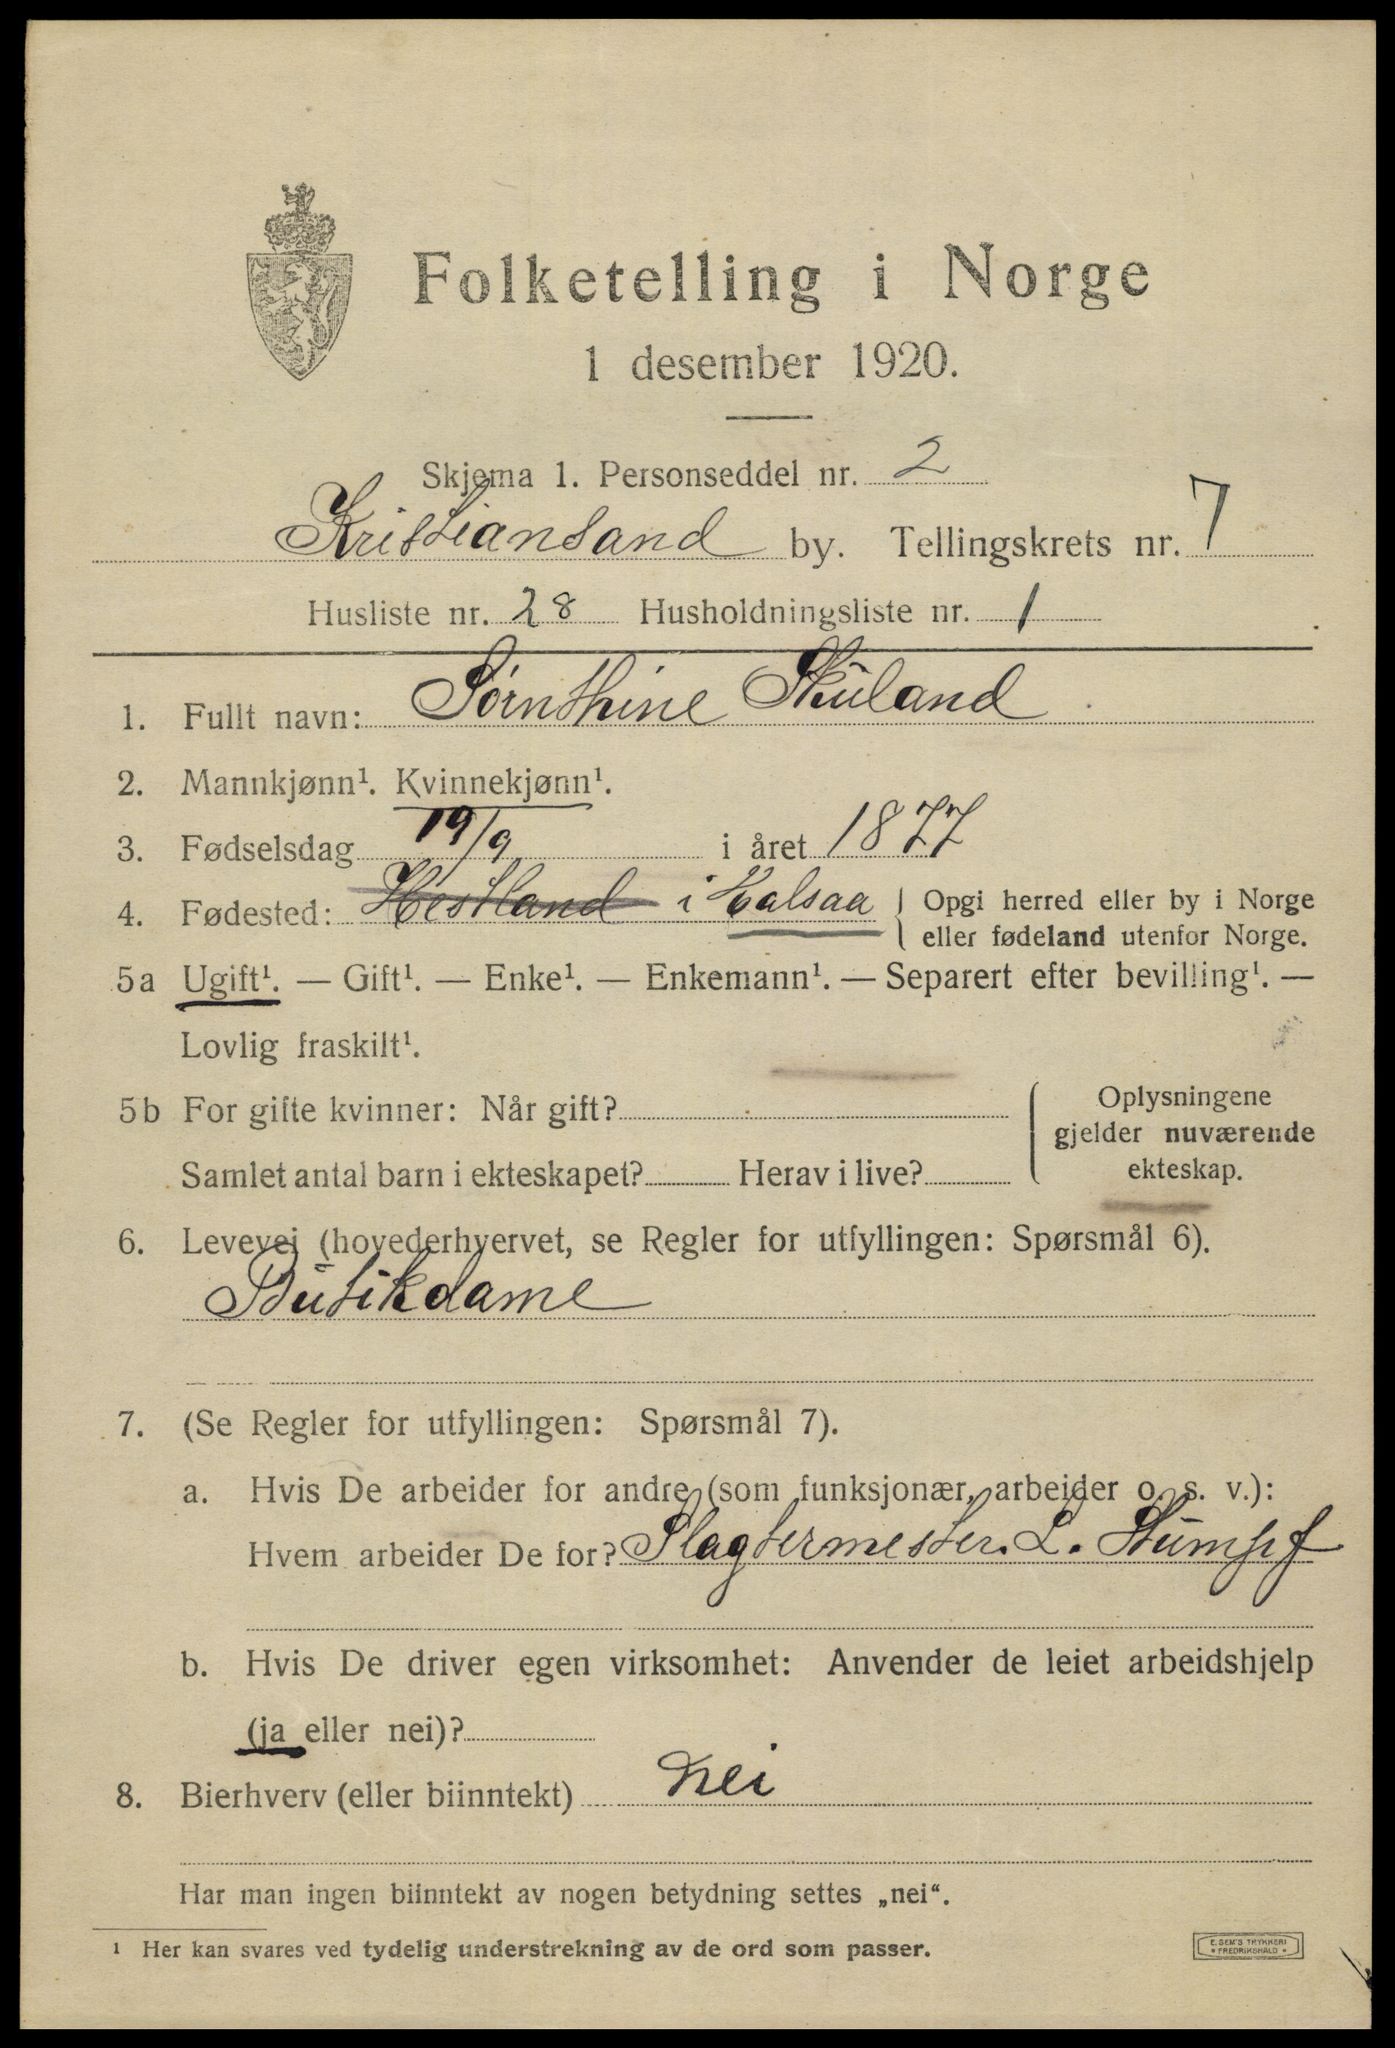 Folketelling i Norge
1 desember 1920.
Skjema 1. Personseddel nr. 2
Kristiansand by. Tellingskrets nr. 7
Husliste nr. 28 Husholdningsliste nr. 1
1. Fullt navn: Sørnthine Skuland
2. Mannkjønn¹. Kvinnekjønn¹.
3. Fødselsdag 19/9 i året 1877
4. Fødested: Hestland i Halsaa { Opgi herred eller by i Norge
eller fødeland utenfor Norge.
5a Ugift¹. — Gift¹. — Enke¹. — Enkemann¹. — Separert efter bevilling¹. —
Lovlig fraskilt¹.
5b For gifte kvinner: Når gift?
Samlet antal barn i ekteskapet? Herav i live?
Oplysningene
gjelder nuværende
ekteskap.
6. Levevei (hovederhvervet, se Regler for utfyllingen: Spørsmål 6).
Butikdame
7. (Se Regler for utfyllingen: Spørsmål 7).
a. Hvis De arbeider for andre (som funksjonær, arbeider o. s. v.):
Hvem arbeider De for? Slagtermester. L. Stumpf
b. Hvis De driver egen virksomhet: Anvender de leiet arbeidshjelp
(ja eller nei)?
8. Bierhverv (eller biinntekt) nei
Har man ingen biinntekt av nogen betydning settes „nei“.
¹ Her kan svares ved tydelig understrekning av de ord som passer.
E. SEM'S TRYKKERI
FREDRIKSHALD